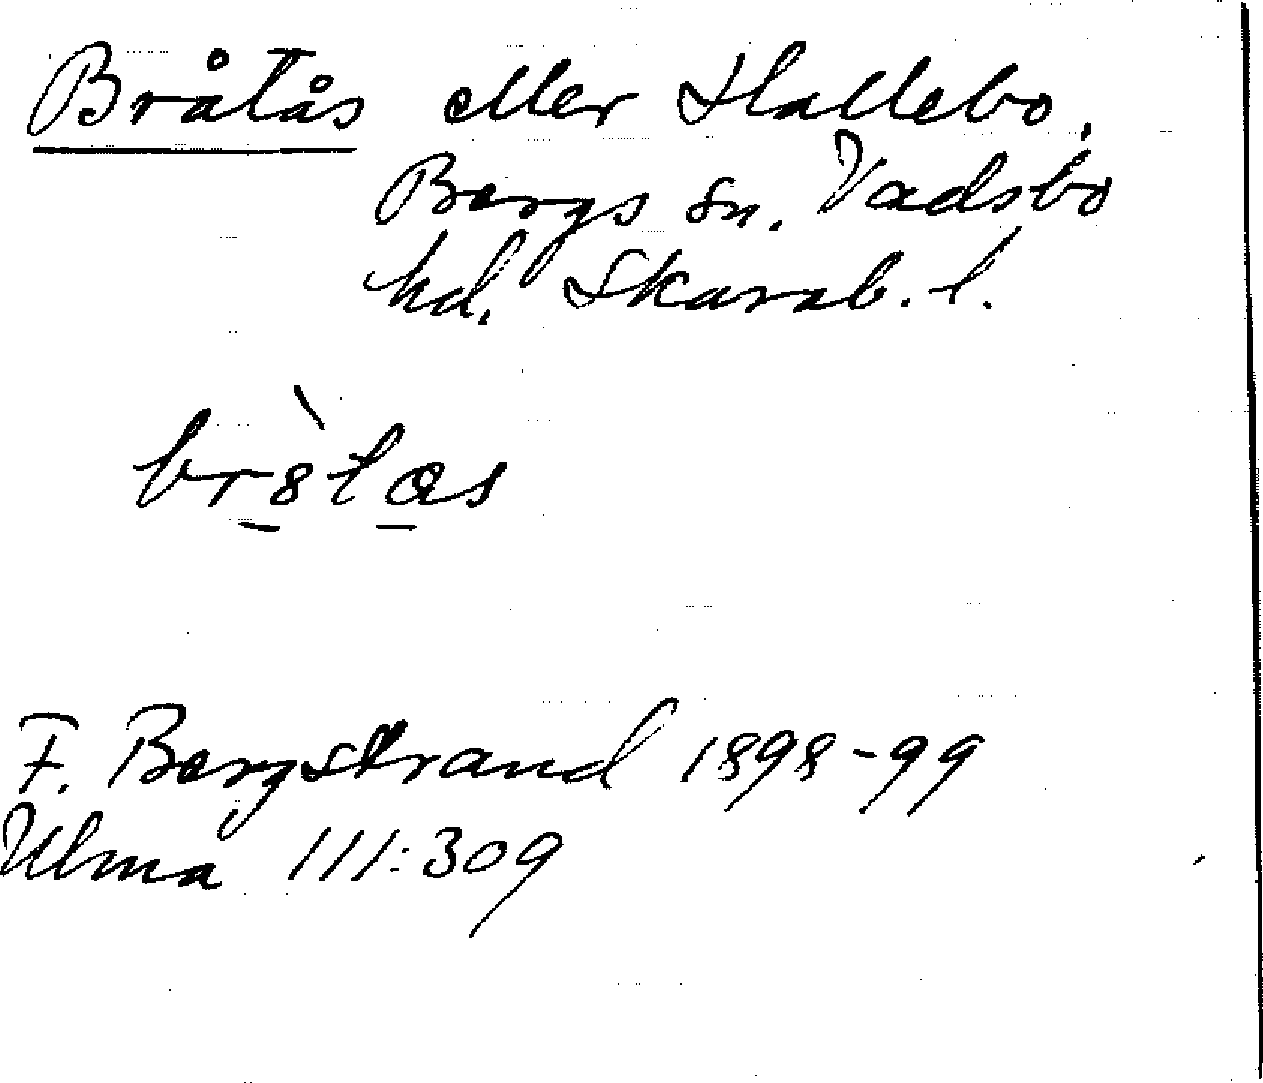 Bråtås eller Hallebo,
Bergs sn. Vadsbo
hd. Skarab. l.
br8̲̀ta̲s
F. Bergstrand 1898-99
Ulma 111:309